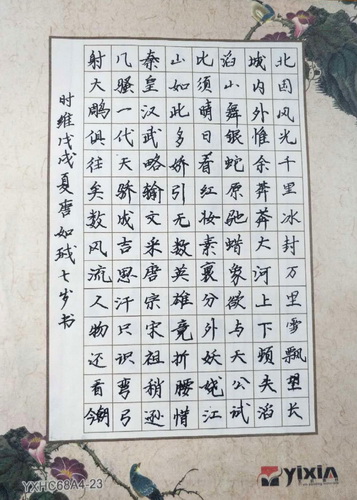 北国风光千里冰封万里雪飘望长
城内外惟余莽莽大河上下顿失滔
滔山舞银蛇原驰蜡象欲与天公试
比须晴日看红妆素裹分外妖娆江
山如此多娇引无数英雄竞折腰惜
秦皇汉武略输文采唐宗宋祖稍逊
风骚一代天骄成吉思汗只识弯弓
射大鵰俱往矣数风流人物还看今朝
时维戊戌夏唐如七岁书
YXHC68A4-23
YiXiN